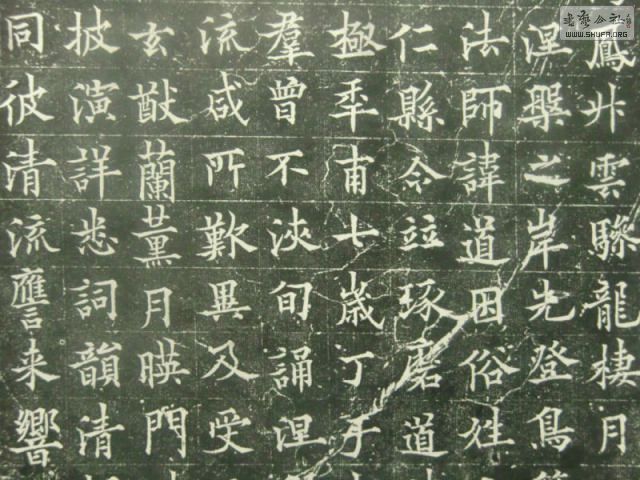 鳳升雲驂龍棲月
涅槃之岸先登鳥
法師諱道因俗姓
仁縣令竝琢磨道
極年甫七歲丁于
羣曾不浹旬誦涅
流咸所歎異及受
玄猷蘭薰月暎門
披演詳悉詞韻清
同彼清流應来響
書藝公社
WWW.SHUFA.ORG